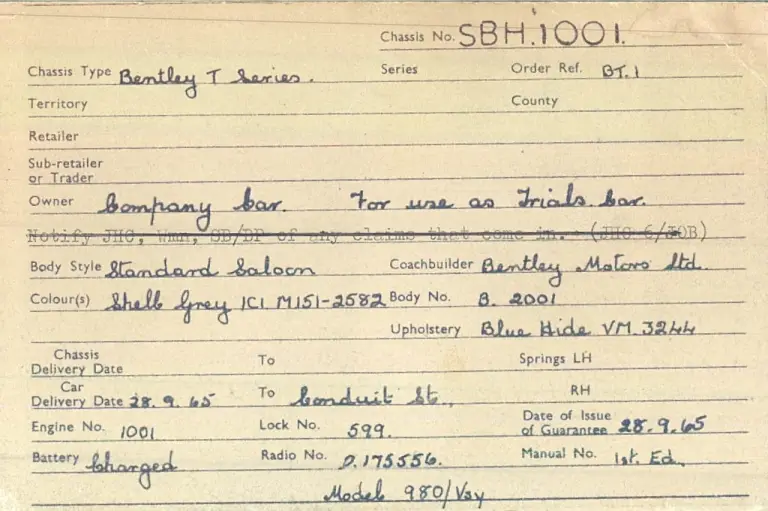 Chassis No. SBH.1001.
Chassis Type Bentley T Series. Series Order Ref. BT.1
Territory County
Retailer
Sub-retailer
or Trader
Owner Company Car. For use as Trials Car.
Notify JHC, Wmn, SB/DP of any claims that come in. (JHC 6/JOB)
Body Style Standard Saloon Coachbuilder Bentley Motors Ltd.
Colour(s) Shell Grey ICI M151-2582 Body No. B. 2001
Upholstery Blue Hide VM. 3244
Chassis
Delivery Date To Springs LH
Car
Delivery Date 28. 9. 65 To Conduit St., RH
Engine No. 1001 Lock No. 599. Date of Issue
of Guarantee 28. 9. 65
Battery Charged Radio No. P.175556. Manual No. 1st. Ed.
Model 980/Vsy